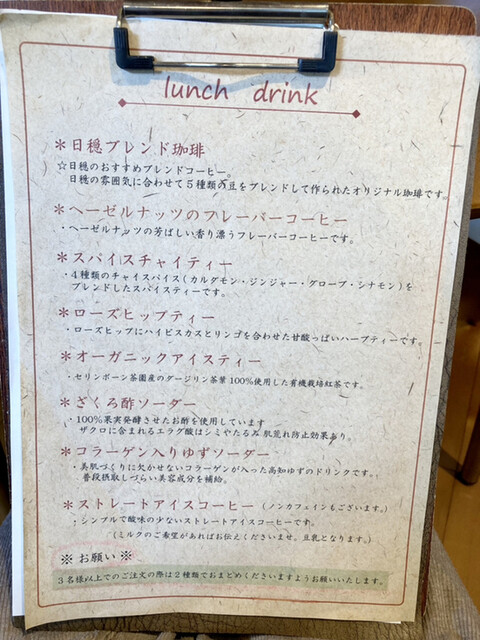 lunch drink
＊日穏ブレンド珈琲
☆日穏のおすすめブレンドコーヒー。
日穏の雰囲気に合わせて５種類の豆をブレンドして作られたオリジナル珈琲です。
＊ヘーゼルナッツのフレーバーコーヒー
・ヘーゼルナッツの芳ばしい香り漂うフレーバーコーヒーです。
＊スパイスチャイティー
・４種類のチャイスパイス(カルダモン・ジンジャー・グローブ・シナモン)を
ブレンドしたスパイスティーです。
＊ローズヒップティー
・ローズヒップにハイビスカスとリンゴを合わせた甘酸っぱいハーブティーです。
＊オーガニックアイスティー
・セリンボーン茶園産のダージリン茶葉100%使用した有機栽培紅茶です。
＊ざくろ酢ソーダー
・100%果実発酵させたお酢を使用しています
ザクロに含まれるエラグ酸はシミやたるみ 肌荒れ防止効果あり。
＊コラーゲン入りゆずソーダー
・美肌づくりに欠かせないコラーゲンが入った高知ゆずのドリンクです。
普段摂取しづらい美容成分を補給。
＊ストレートアイスコーヒー (ノンカフェインもございます。)
・シンプルで酸味の少ないストレートアイスコーヒーです。
(ミルクのご希望があればお伝えくださいませ。豆乳となります。)
※ お願い ※
３名様以上でのご注文の際は２種類でおまとめくださいますようお願いいたします。